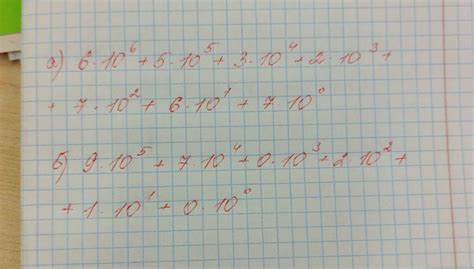 а) 6·10⁶+5·10⁵+3·10⁴+2·10³+
+ 7·10²+ 6·10¹ + 7·10⁰
б) 9·10⁵ + 7·10⁴+0·10³+2·10²+
+1·10¹ + 0·10⁰